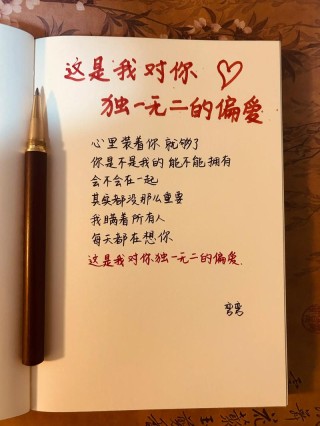 这是我对你♡
独一无二的偏爱
心里装着你 就够了
你是不是我的 能不能拥有
会不会在一起
其实都没那么重要
我瞒着所有人
每天都在想你
这是我对你独一无二的偏爱.
弯弯